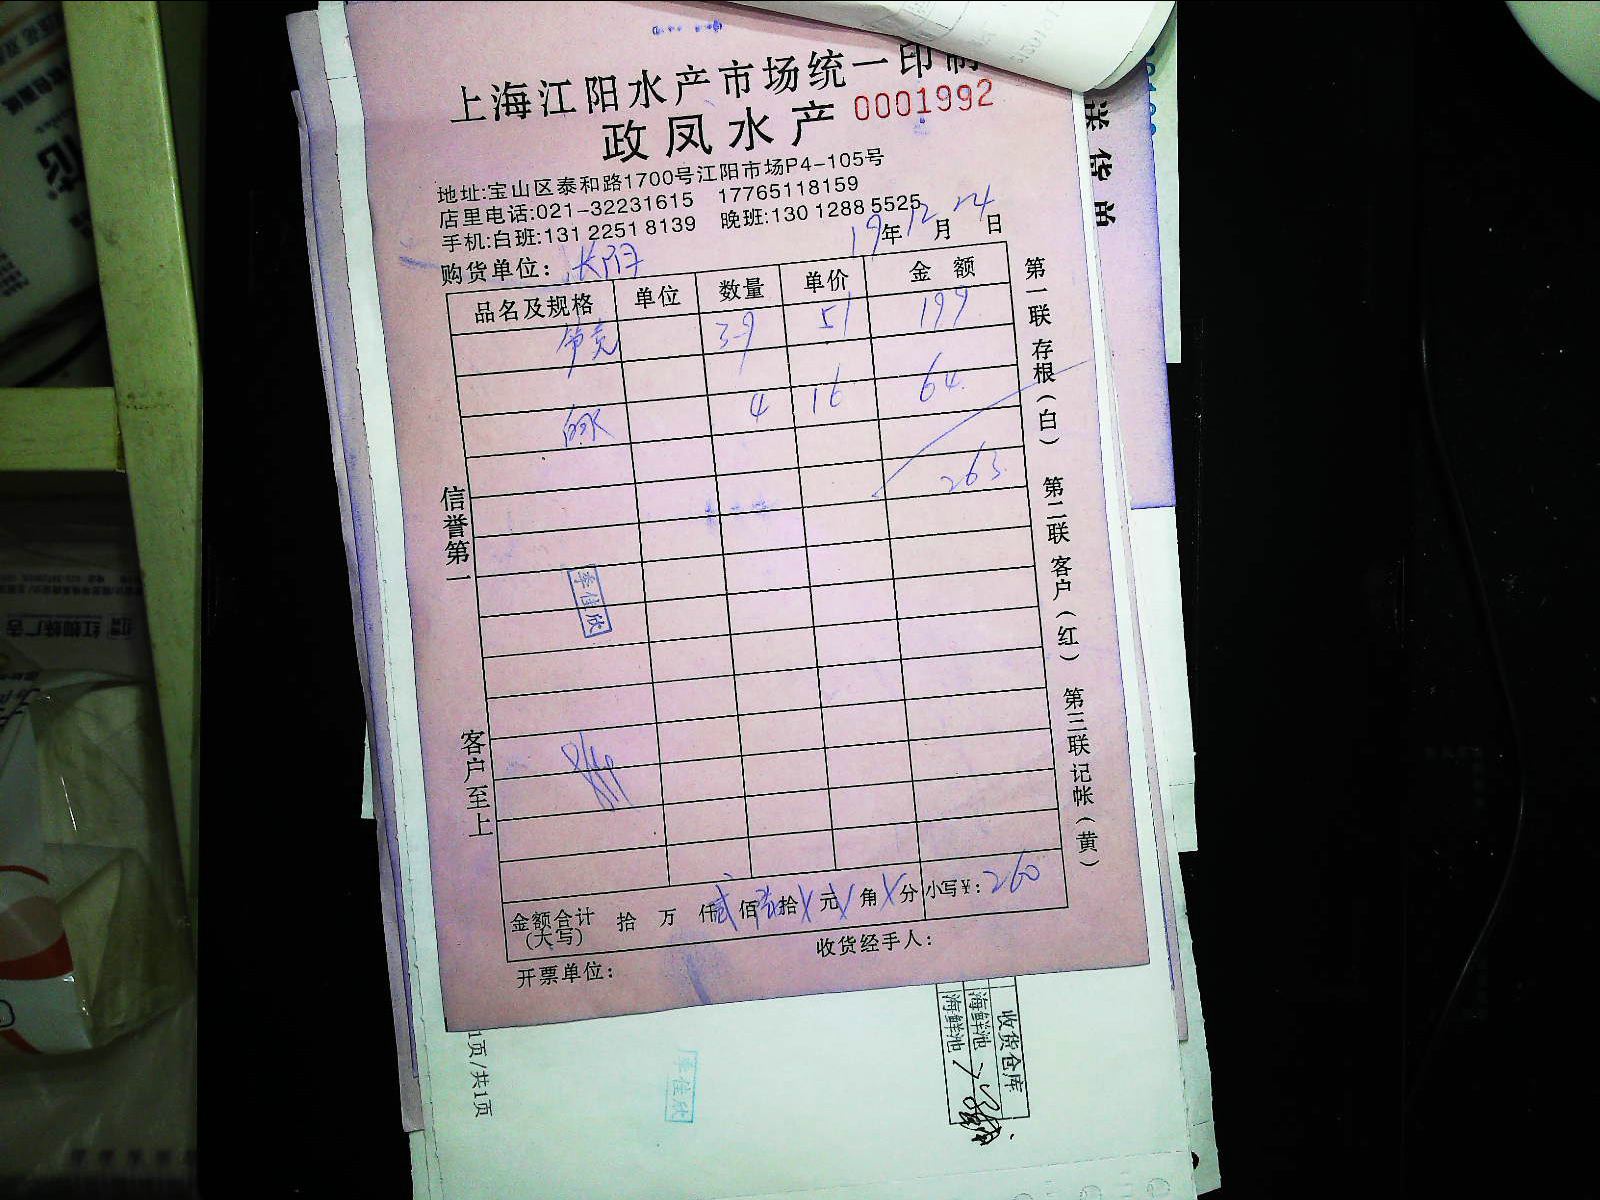 上海江阳水产市场统一印制
政凤水产 0001992
地址:宝山区泰和路1700号江阳市场P4-105号
店里电话:021-32231615 17765118159
手机:白班:131 2251 8139 晚班:130 1288 5525
19年12月24日
购货单位:
品名及规格 单位 数量 单价 金额
39 51 199
4 16 64
263
信誉第一
客户至上
第一联存根(白) 第二联客户(红) 第三联记帐(黄)
李佳欣
金额合计(大写) 拾 万 仟 贰佰 拾 元 角 分 小写¥: 260
收货经手人:
开票单位:
送货单
1页/共1页
李佳欣
收货仓库
海鲜池
海鲜池
红蜘蛛广告